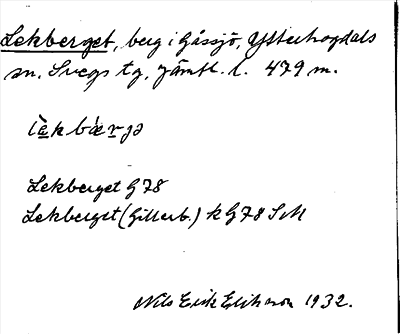 Lekberget, berg i Gåssjö, Ytterhogdals
sn. Svegs tg, Jämtl. l. 479 m.
lèkbærjə
Lekberget G 78
Lekberget (Gillerb.) k G 78 SM
Nils Erik Eliasson 1932.